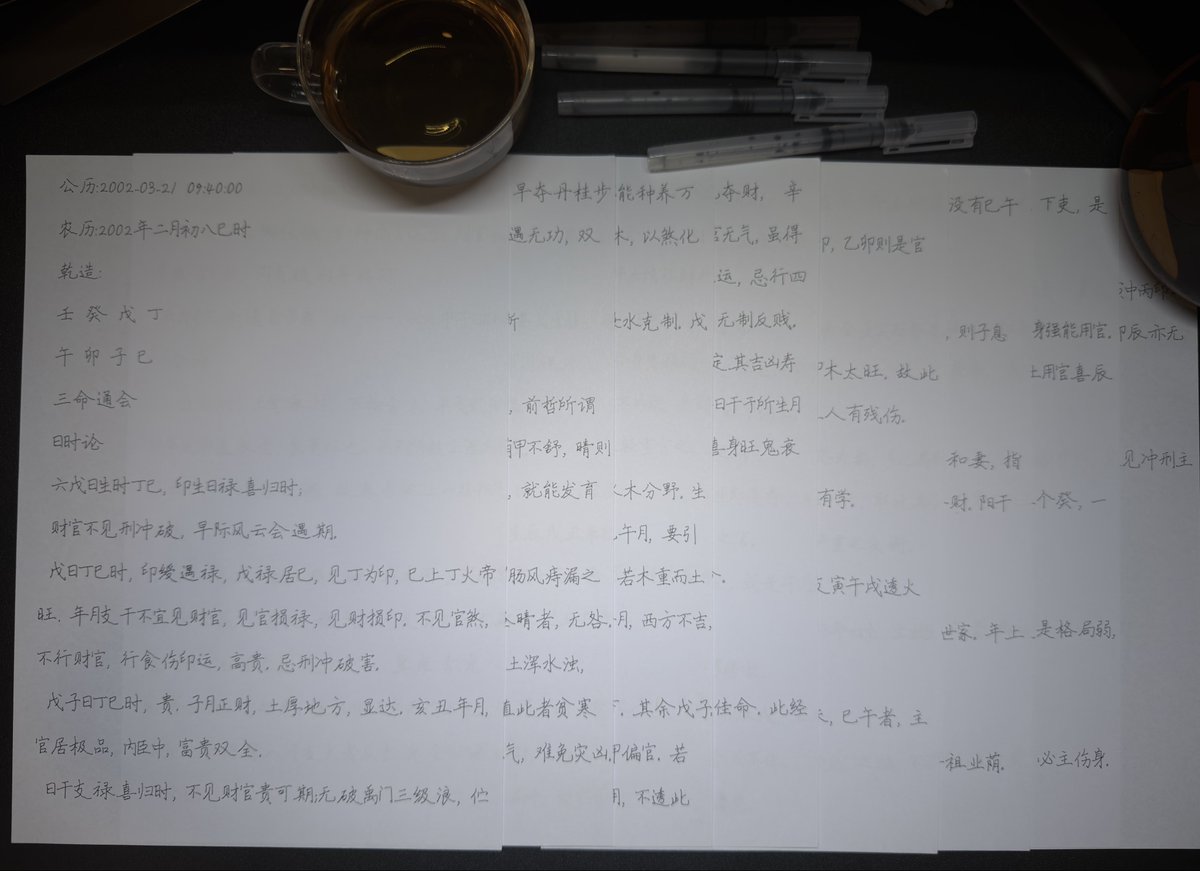 公历:2002-03-21 09:40:00
农历:2002年二月初八巳时
乾造:
壬 癸 戊 丁
午 卯 子 巳
三命通会
日时论
六戊日生时丁巳, 印生日禄喜归时;
财官不见刑冲破, 早际风云会遇期.
戊日丁巳时, 印绶遇禄, 戊禄居巳, 见丁为印, 巳上丁火帝
旺. 年月支干不宜见财官, 见官损禄, 见财损印. 不见官煞,
不行财官, 行食伤印运, 高贵. 忌刑冲破害.
戊子日丁巳时, 贵. 子月正财, 土厚地方, 显达. 亥丑年月,
官居极品, 内臣中, 富贵双全.
日干支禄喜归时, 不见财官贵可期;无破禹门三级浪,
早夺丹桂步
遇无功, 双
, 前哲所谓
甲不舒, 晴则
, 就能发育
肠风痔漏之
晴者, 无咎.
土浑水浊,
值此者贫寒
气, 难免灾凶
能种养万
木, 以煞化
水克制. 戊
木分野. 生
午月, 要引
若木重而土
月, 西方不吉,
. 其余戊子
偏官. 若
月, 不透此
夺财, 辛
无气, 虽得
运, 忌行四
无制反贱.
定其吉凶寿
日干于所生月
喜身旺鬼衰
佳命. 此经
, 乙卯则是官
木太旺, 故此
人有残伤.
有学.
寅午戌透火
, 巳午者, 主
没有巳午
, 则子息
和妻, 指
财, 阳干
世家. 年上
祖业荫.
下吏, 是
身强能用官.
土用官喜辰
个癸, 一
是格局弱,
必主伤身.
中丙
辰亦无
见冲刑主